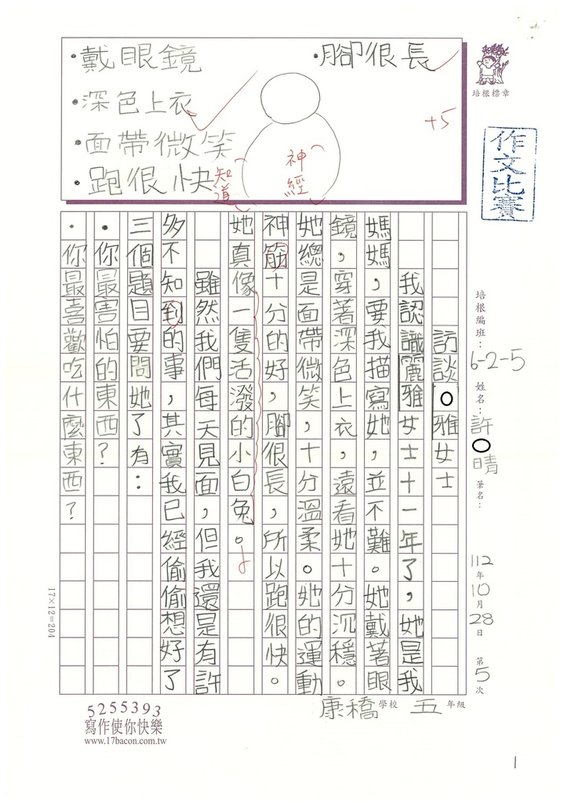 ・戴眼鏡
・深色上衣
・面帶微笑
・跑很快
・腳很長
知道
神經
+5
培根標章
作文比賽
培根編班：6-2-5 姓名：許○晴 筆名：
112年10月28日 第5次
訪談○雅女士
我認識麗雅女士十一年了，她是我
媽媽，要我描寫她，並不難。她戴著眼
鏡，穿著深色上衣，遠看她十分沉穩。
她總是面帶微笑，十分溫柔。她的運動
神筋十分的好，腳很長，所以跑很快。
她真像一隻活潑的小白兔。
雖然我們每天見面，但我還是有許
多不知到的事，其實我已經偷偷想好了
三個題目要問她了有：
・你最害怕的東西？
・你最喜歡吃什麼東西？
17×12=204
5255393
寫作使你快樂
www.17bacon.com.tw
康橋學校 五年級
1